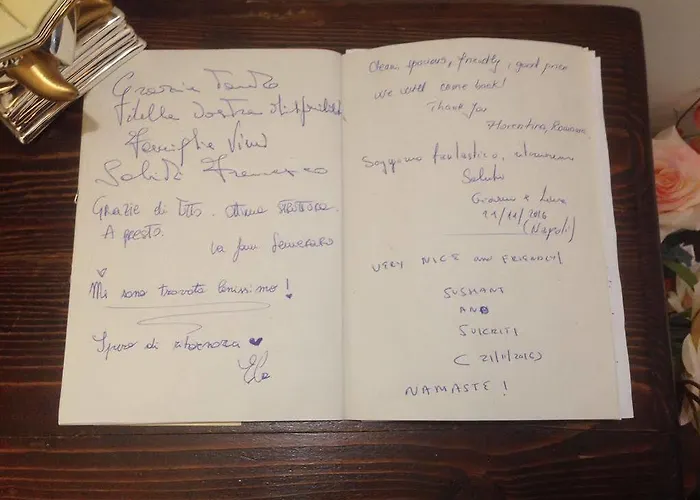 Grazie Tante
della Vostra
Famiglia
Saluti Francesco
Grazie di tutto. Ottima STRUTTURA.
A presto.
La fam Semeraro
Mi sono trovata benissimo!
Spero di ritornare
Ele
Clean, spacious, friendly, good price
we will come back!
Thank you
Florentina, Romania
Soggiorno fantastico,
Saluti
Gianni e Luisa
11/11/2016
(Napoli)
VERY NICE AND FRIENDLY!
SUSHANT
AND
SUKRITI
(21/11/2016)
NAMASTE!